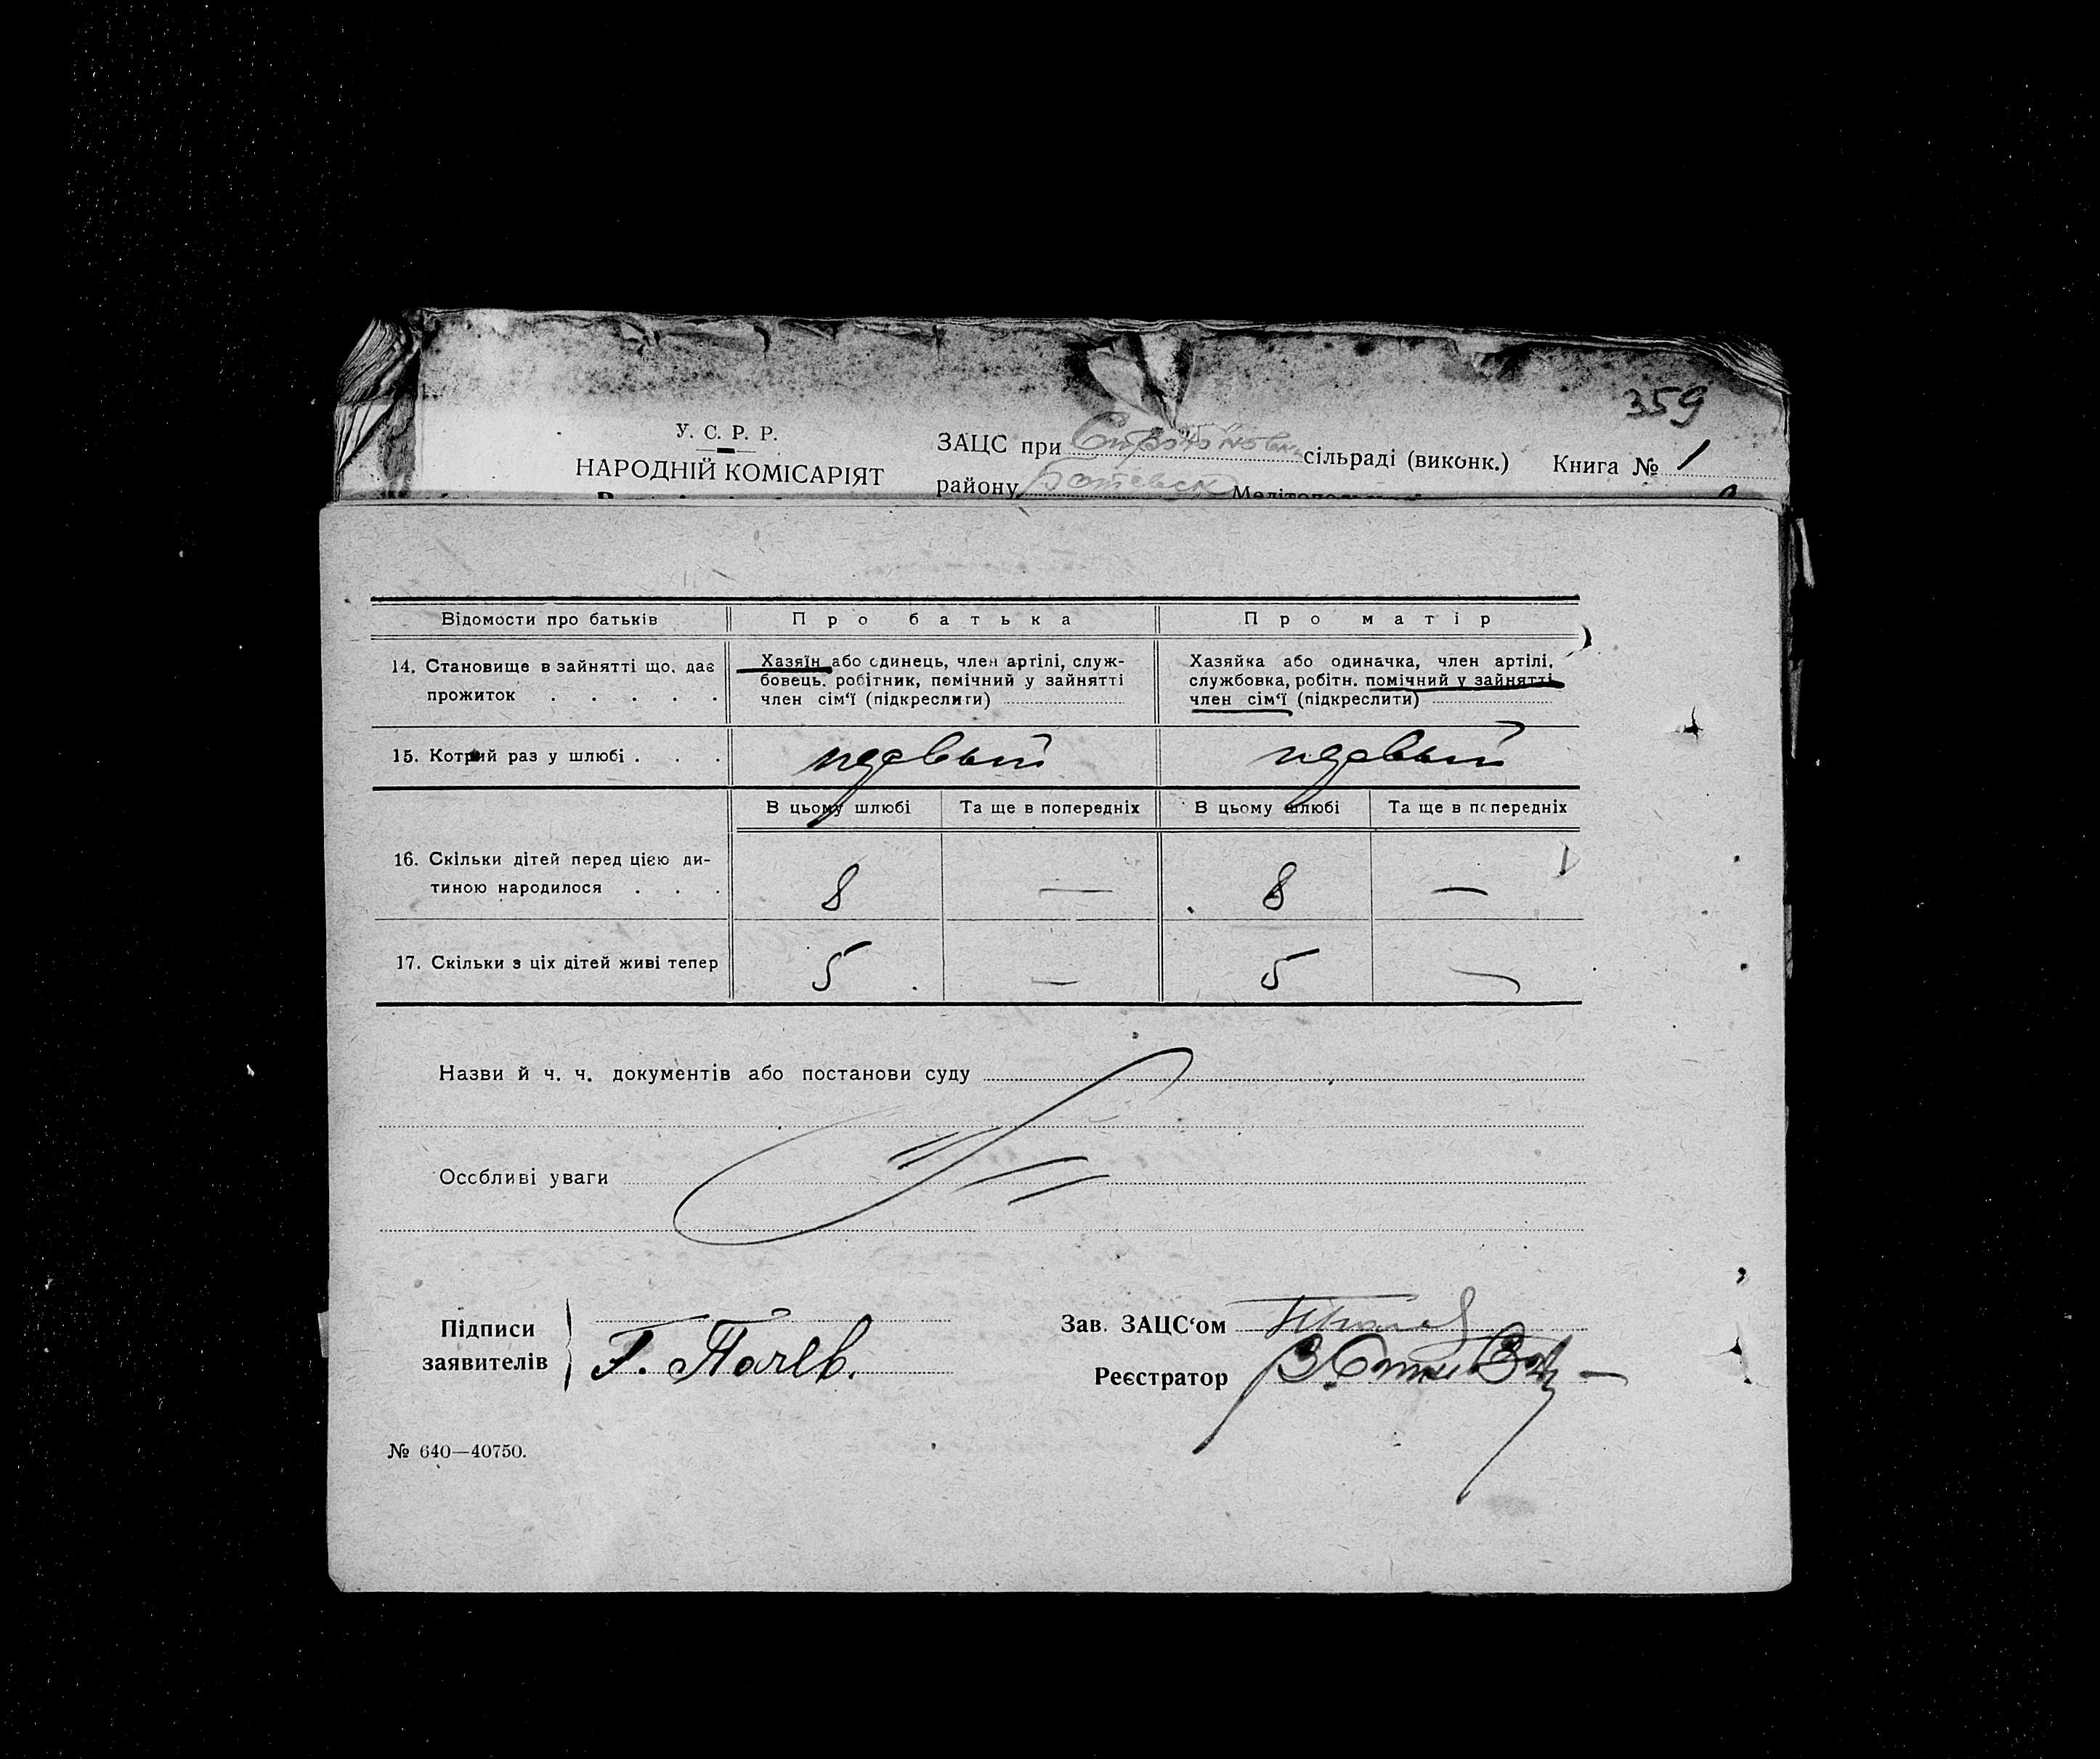 359
У. С. Р. Р.
НАРОДНІЙ КОМІСАРІЯТ
ЗАЦС при сільраді (виконк.) Книга № 1
району
Відомости про батьків Про батька Про матір
14. Становище в зайнятті що, дає
прожиток . . . . .
Хазяїн або одинець, член артілі, служ-
бовець, робітник, помічний у зайнятті
член сім'ї (підкреслити)
Хазяйка або одиначка, член артілі,
службовка, робітн. помічний у зайнятті
член сім'ї (підкреслити)
15. Котрий раз у шлюбі . . . первый первый
В цьому шлюбі Та ще в попередніх В цьому шлюбі Та ще в попередніх
16. Скільки дітей перед цією ди-
тиною народилося . . . 8 — 8 —
17. Скільки з ціх дітей живі тепер 5 — 5 —
Назви й ч. ч. документів або постанови суду
Особливі уваги
Підписи
заявителів
Зав. ЗАЦС'ом
Реєстратор
№ 640—40750.